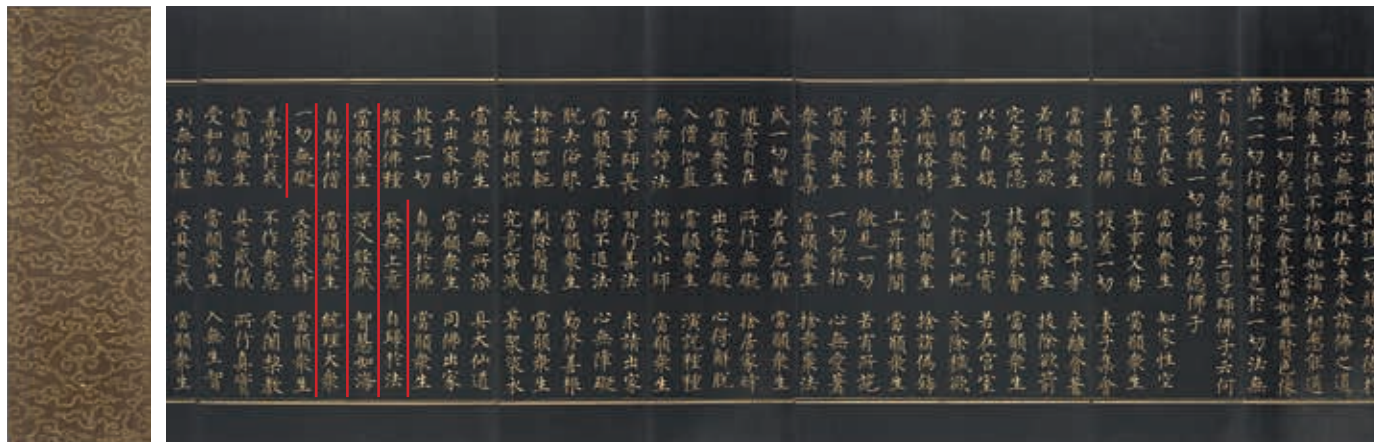 諸佛法心無所礙住去來今諸佛之道
隨眾生住恒不捨離如諸法相悉能通
達斷一切惡具足眾善當如普賢色像
第一一切行願皆得具足於一切法無
不自在而為眾生第二導師佛子云何
用心能獲一切勝妙功德佛子
菩薩在家 當願眾生 知家性空
免其逼迫 孝事父母 當願眾生
善事於佛 護養一切 妻子集會
當願眾生 怨親平等 永離貪著
若得五欲 當願眾生 拔除欲箭
究竟安隱 妓樂聚會 當願眾生
以法自娛 了妓非實 若在宮室
當願眾生 入於聖地 永除穢欲
著瓔珞時 當願眾生 捨諸偽飾
到真實處 上昇樓閣 當願眾生
昇正法樓 徹見一切 若有所施
當願眾生 一切能捨 心無愛著
眾會聚集 當願眾生 捨眾聚法
成一切智 若在厄難 當願眾生
隨意自在 所行無礙 捨居家時
當願眾生 出家無礙 心得解脫
入僧伽藍 當願眾生 演說種種
無乖諍法 詣大小師 當願眾生
巧事師長 習行善法 求請出家
當願眾生 得不退法 心無障礙
脫去俗服 當願眾生 勤修善根
捨諸罪軛 剃除鬚髮 當願眾生
永離煩惱 究竟寂滅 著袈裟衣
當願眾生 心無所染 具大仙道
正出家時 當願眾生 同佛出家
救護一切 自歸於佛 當願眾生
紹隆佛種 發無上意 自歸於法
當願眾生 深入經藏 智慧如海
自歸於僧 當願眾生 統理大眾
一切無礙 受學戒時 當願眾生
善學於戒 不作眾惡 受闍梨教
當願眾生 具足威儀 所行真實
受和尚教 當願眾生 入無生智
到無依處 受具足戒 當願眾生